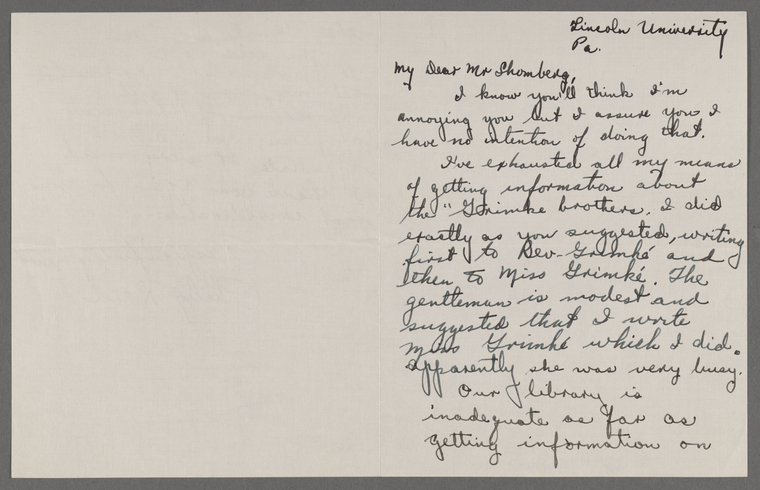 Lincoln University
Pa.
My Dear Mr Shomberg,
I know you'll think I'm
annoying you but I assure you I
have no intention of doing that.
I've exhausted all my means
of getting information about
the "Grimke brothers. I did
exactly as you suggested, writing
first to Rev. Grimké and
then to Miss Grimké. The
gentleman is modest and
suggested that I write
Miss Grimké which I did.
Apparently she was very busy.
Our library is
inadequate as far as
getting information on